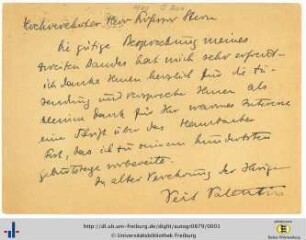 Hochverehrter Herr Professor Stern
Die gütige Besprechung meines
zweiten Bandes hat mich sehr erfreut –
ich danke Ihnen herzlich für die Zu-
sendung und verspreche Ihnen als
kleinen Dank für Ihr warmes Interesse
eine Schrift über das Hambacher
Fest, das ich zu seinem hundertsten
Geburtstage vorbereite.
In alter Verehrung der Ihrige
Veit Valentin
http://dl.ub.uni-freiburg.de/diglit/autogr0879/0001
© Universitätsbibliothek Freiburg